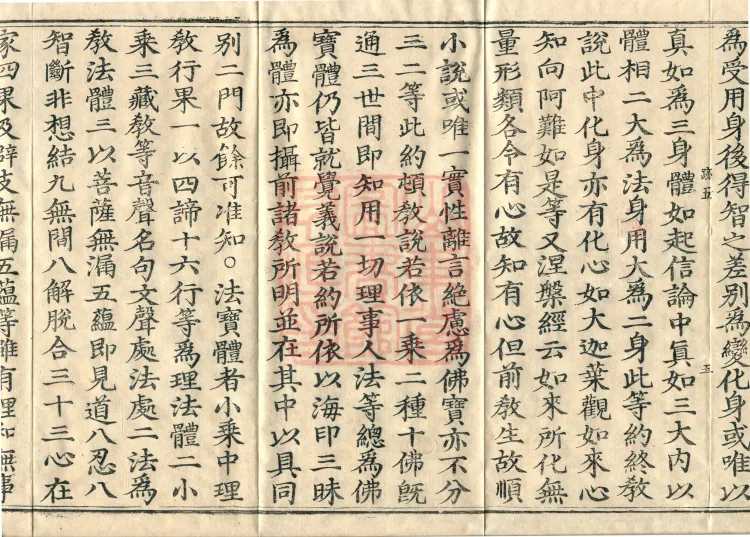 為受用身後得智之差別為變化身或唯以
真如為三身體如起信論中真如三大內以
體相二大為法身用大為二身此等約終教
說此中化身亦有化心如大迦葉觀如來心
知向阿難如是等又涅槃經云如來所化無
量形類各令有心故知有心但前教生故順
小說或唯一實性離言絕慮為佛寶亦不分
三二等此約頓教說若依一乘二種十佛旣
通三世間即知用一切理事人法等總為佛
寶體仍皆就覺義說若約所依以海印三昧
為體亦即攝前諸教所明並在其中以具同
別二門故餘可准知○法寶體者小乘中理
教行果一以四諦十六行等為理法體二小
乘三藏教等音聲名句文聲處法處二法為
教法體三以菩薩無漏五蘊即見道八忍八
智斷非想結九無間八解脫合三十三心在
家四果及辟支無漏五蘊等雖有理知無事
五